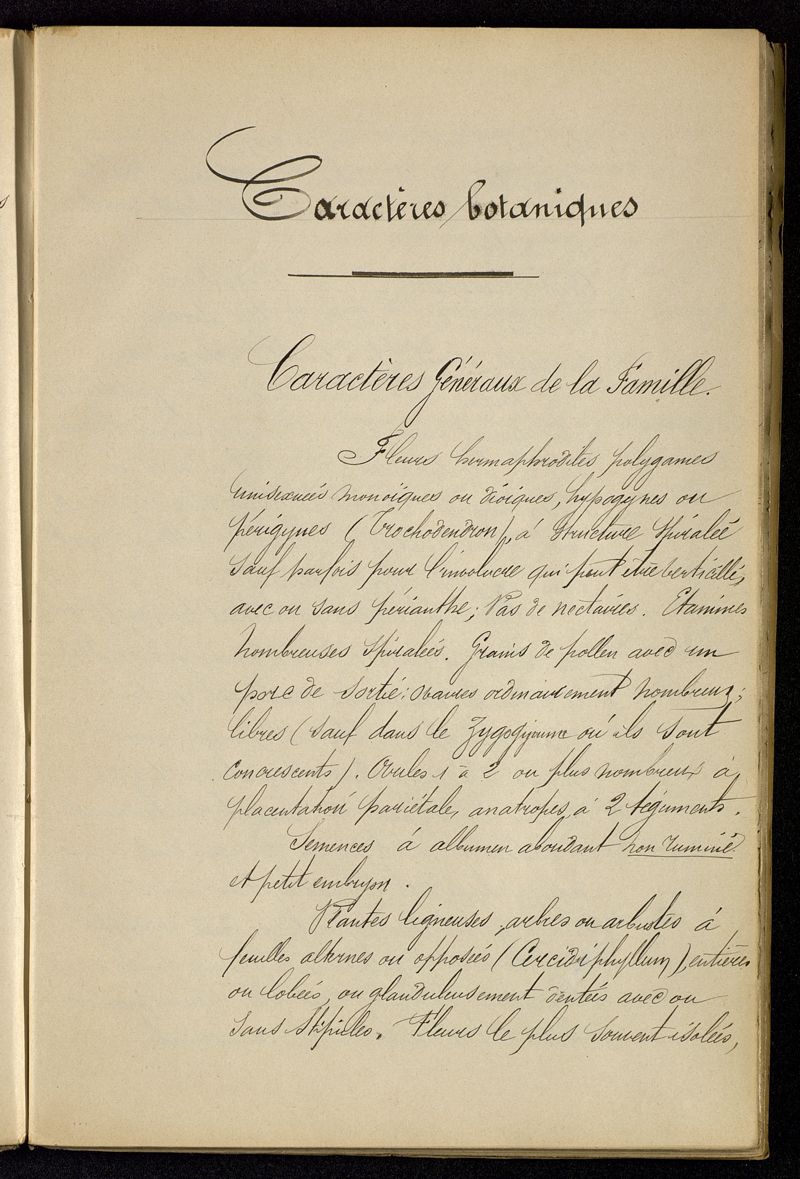 Caractères botaniques
Caractères Généraux de la Famille.
Fleurs hermaphrodites polygames
unisexuées monoïques ou dioïques, hypogynes ou
périgynes (Trochodendron), à structure spiralée
sauf parfois pour l'involucre qui peut être verticillé,
avec ou sans périanthe; Pas de nectaires. Etamines
nombreuses spiralées. Grains de pollen avec un
pore de sortie; ovaires ordinairement nombreux;
libres (sauf dans le Zygogynum où ils sont
concrescents). Ovules 1 à 2 ou plus nombreux à
placentation pariétale, anatropes, à 2 téguments.
Semences à albumen abondant non ruminé
et petit embryon.
Plantes ligneuses, arbres ou arbustes à
feuilles alternes ou opposées (Cercidiphyllum), entières
ou lobées, ou glanduleusement dentées avec ou
sans stipules. Fleurs le plus souvent isolées,